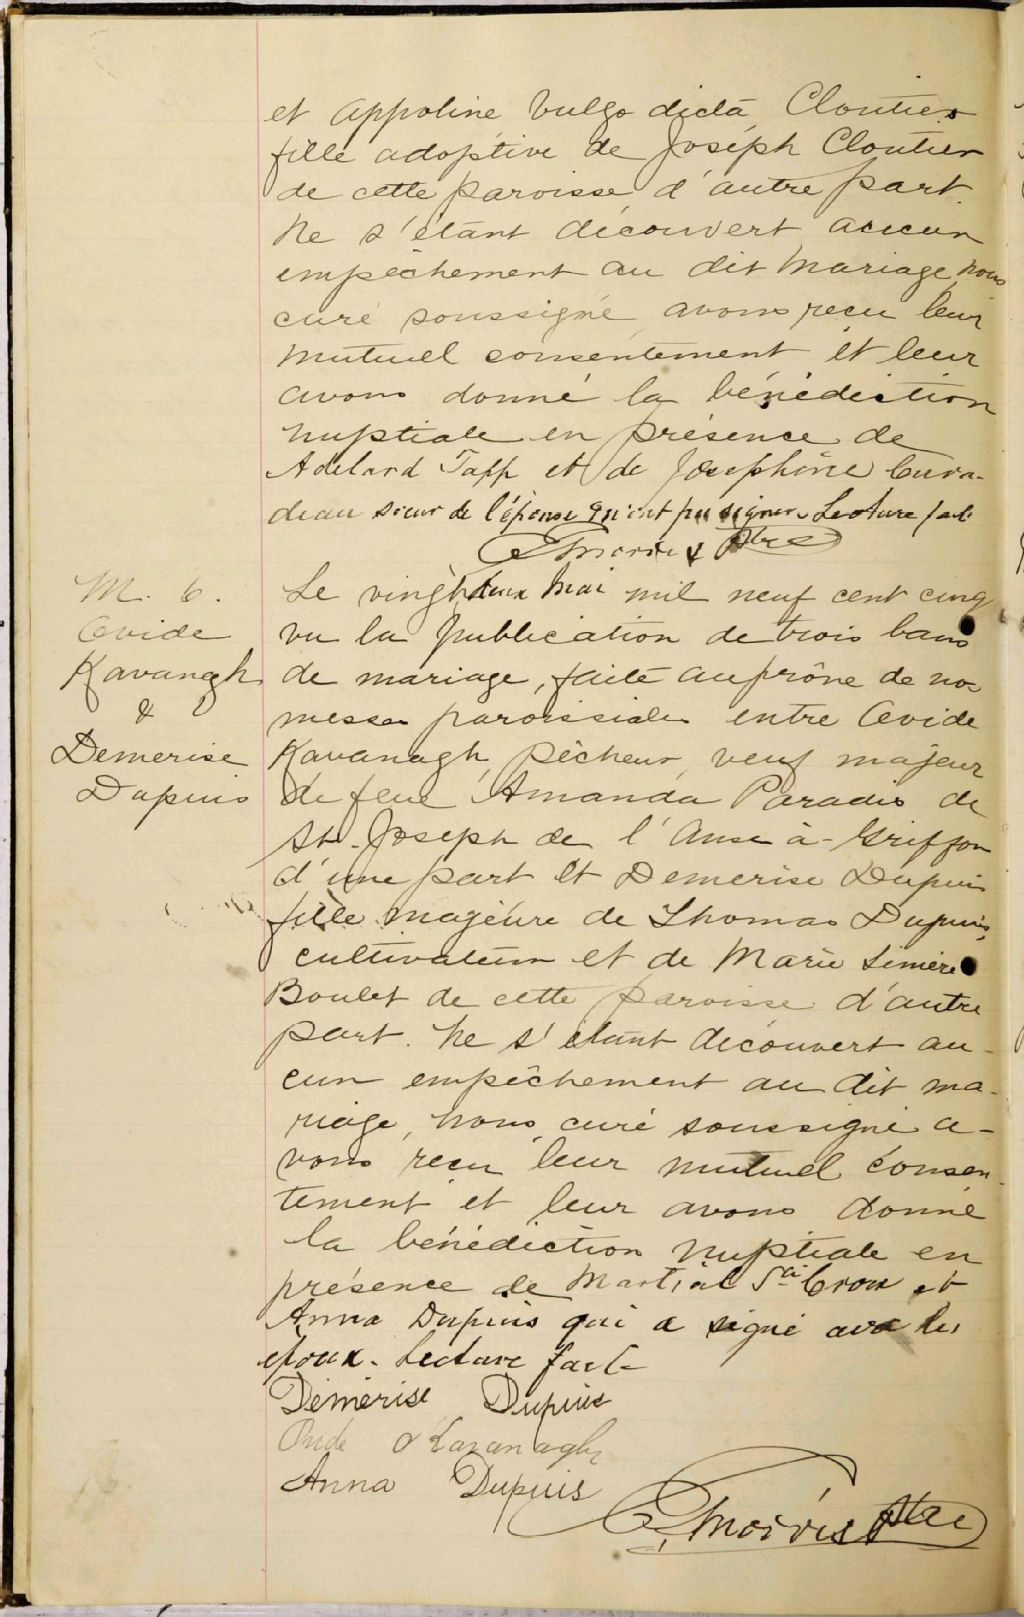 et Appoline Vulgo dicta Cloutier
fille adoptive de Joseph Cloutier
de cette paroisse d'autre part.
Ne s'étant découvert aucun
empêchement au dit Mariage, nous
curé soussigné avons reçu leur
mutuel consentement et leur
avons donné la bénédiction
nuptiale en présence de
Adelard Tapp et de Josephine Cura-
deau sœur de l'épouse qui n'ont pu signer. Lecture faite
Morris Ptre
M. 6.
Ovide
Kavanagh
&
Demerise
Dupuis
Le vingt deux Mai mil neuf cent cinq
vu la publication de trois bans
de mariage, faite au prône de nos
messes paroissiales entre Ovide
Kavanagh, pêcheur, veuf majeur
de feue Amanda Paradis de
St. Joseph de l'Anse-à-Griffon
d'une part et Demerise Dupuis
fille majeure de Thomas Dupuis,
cultivateur et de Marie
Boulet de cette paroisse d'autre
part. Ne s'étant découvert au-
cun empêchement au dit ma-
riage, nous, curé soussigné a-
vons reçu leur mutuel consen-
tement et leur avons donné
la bénédiction nuptiale en
présence de Martial Ste Croix et
Anna Dupuis qui a signé avec les
époux. Lecture faite
Démerise Dupuis
Ovide Kavanagh
Anna Dupuis
Morris Ptre